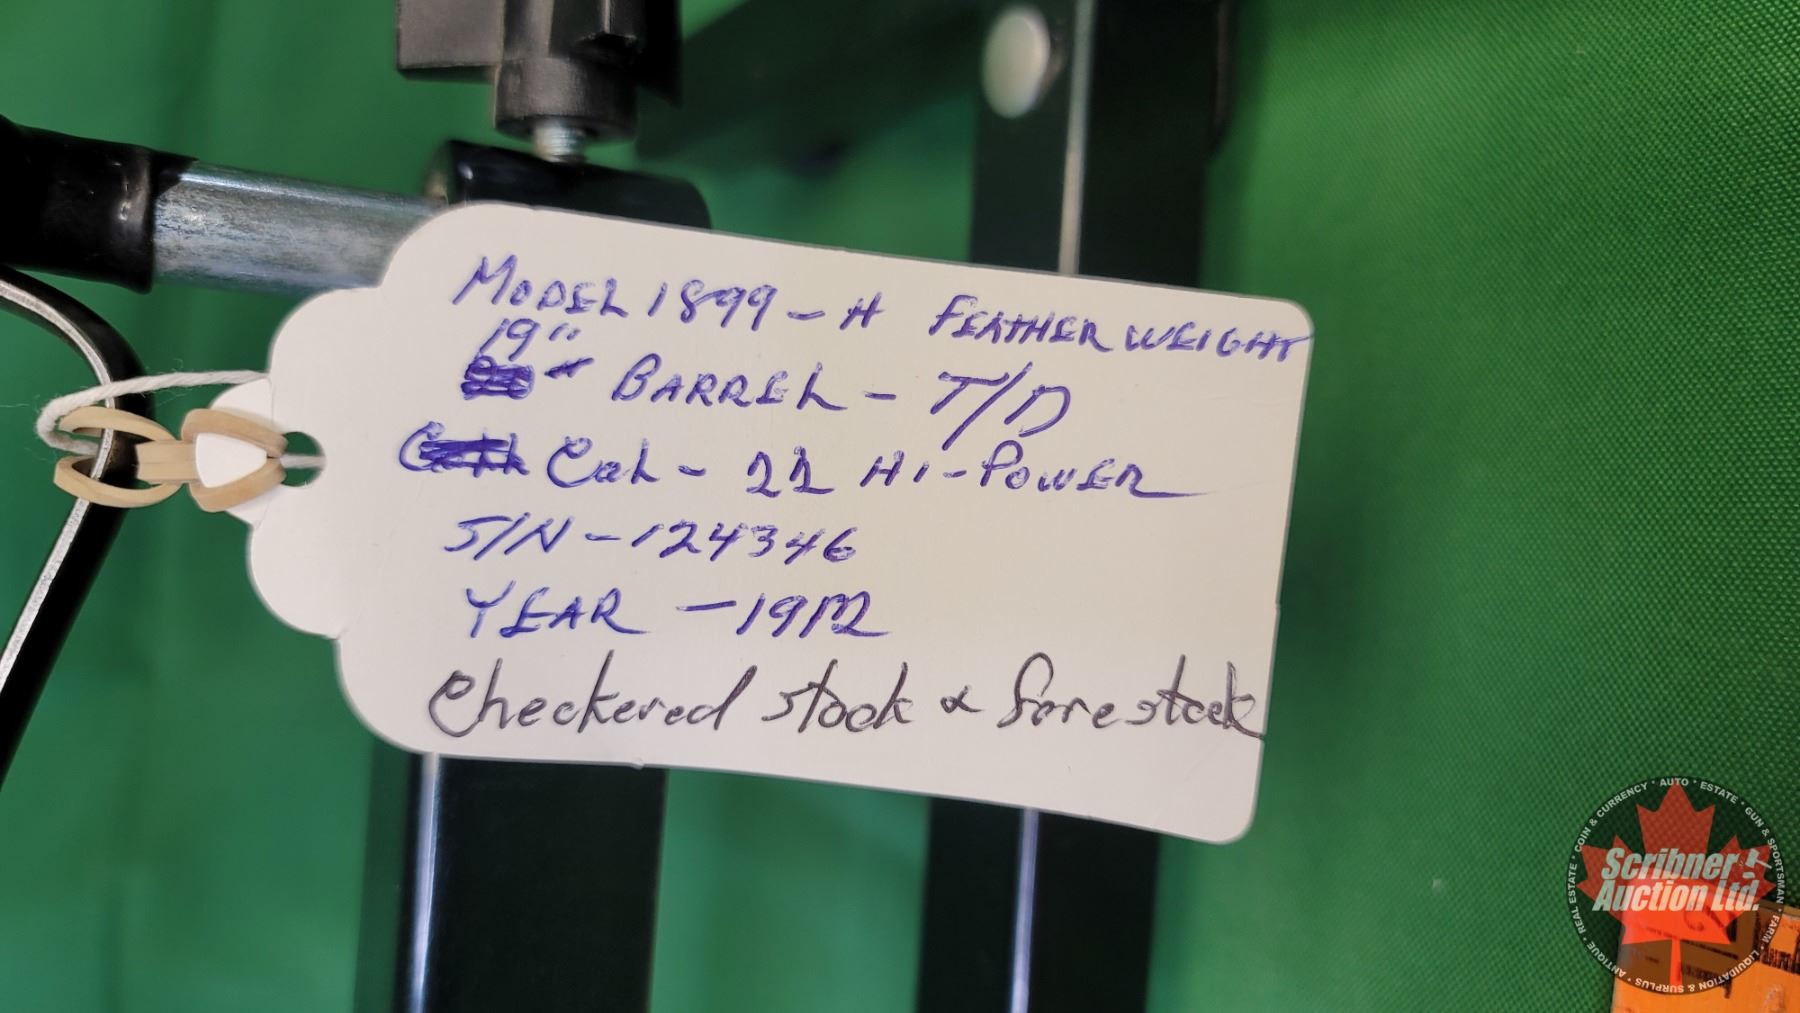 MODEL 1899 - H FEATHERWEIGHT
19"
BARREL - T/D
Cal - 22 HI-POWER
S/N - 124346
YEAR - 1912
Checkered stock & forestock
Scribner
Auction Ltd.
REAL ESTATE • COIN & CURRENCY • AUTO • ESTATE • GUN & SPORTSMAN • FARM • LIQUIDATION & SURPLUS • ANTIQUE